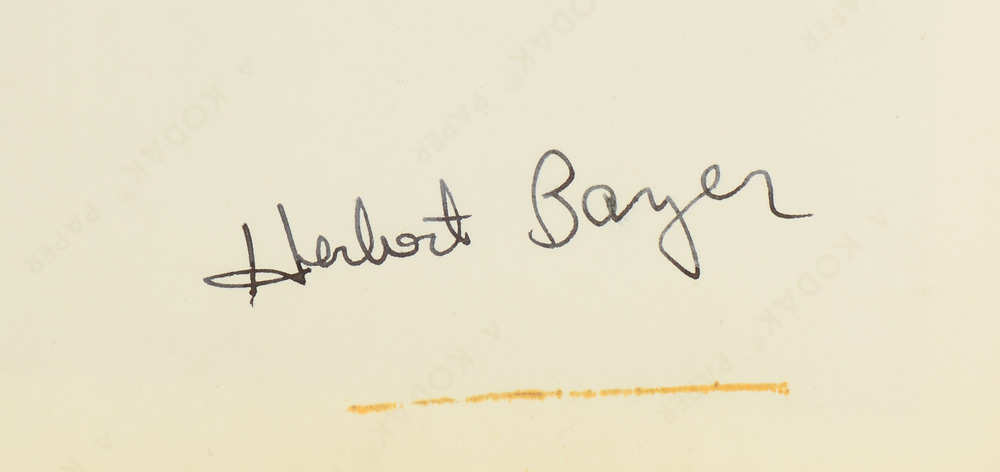 Herbert Bayer
A KODAK® PAPER
A KODAK® PAPER
A KODAK® PAPER
A KODAK® PAPER